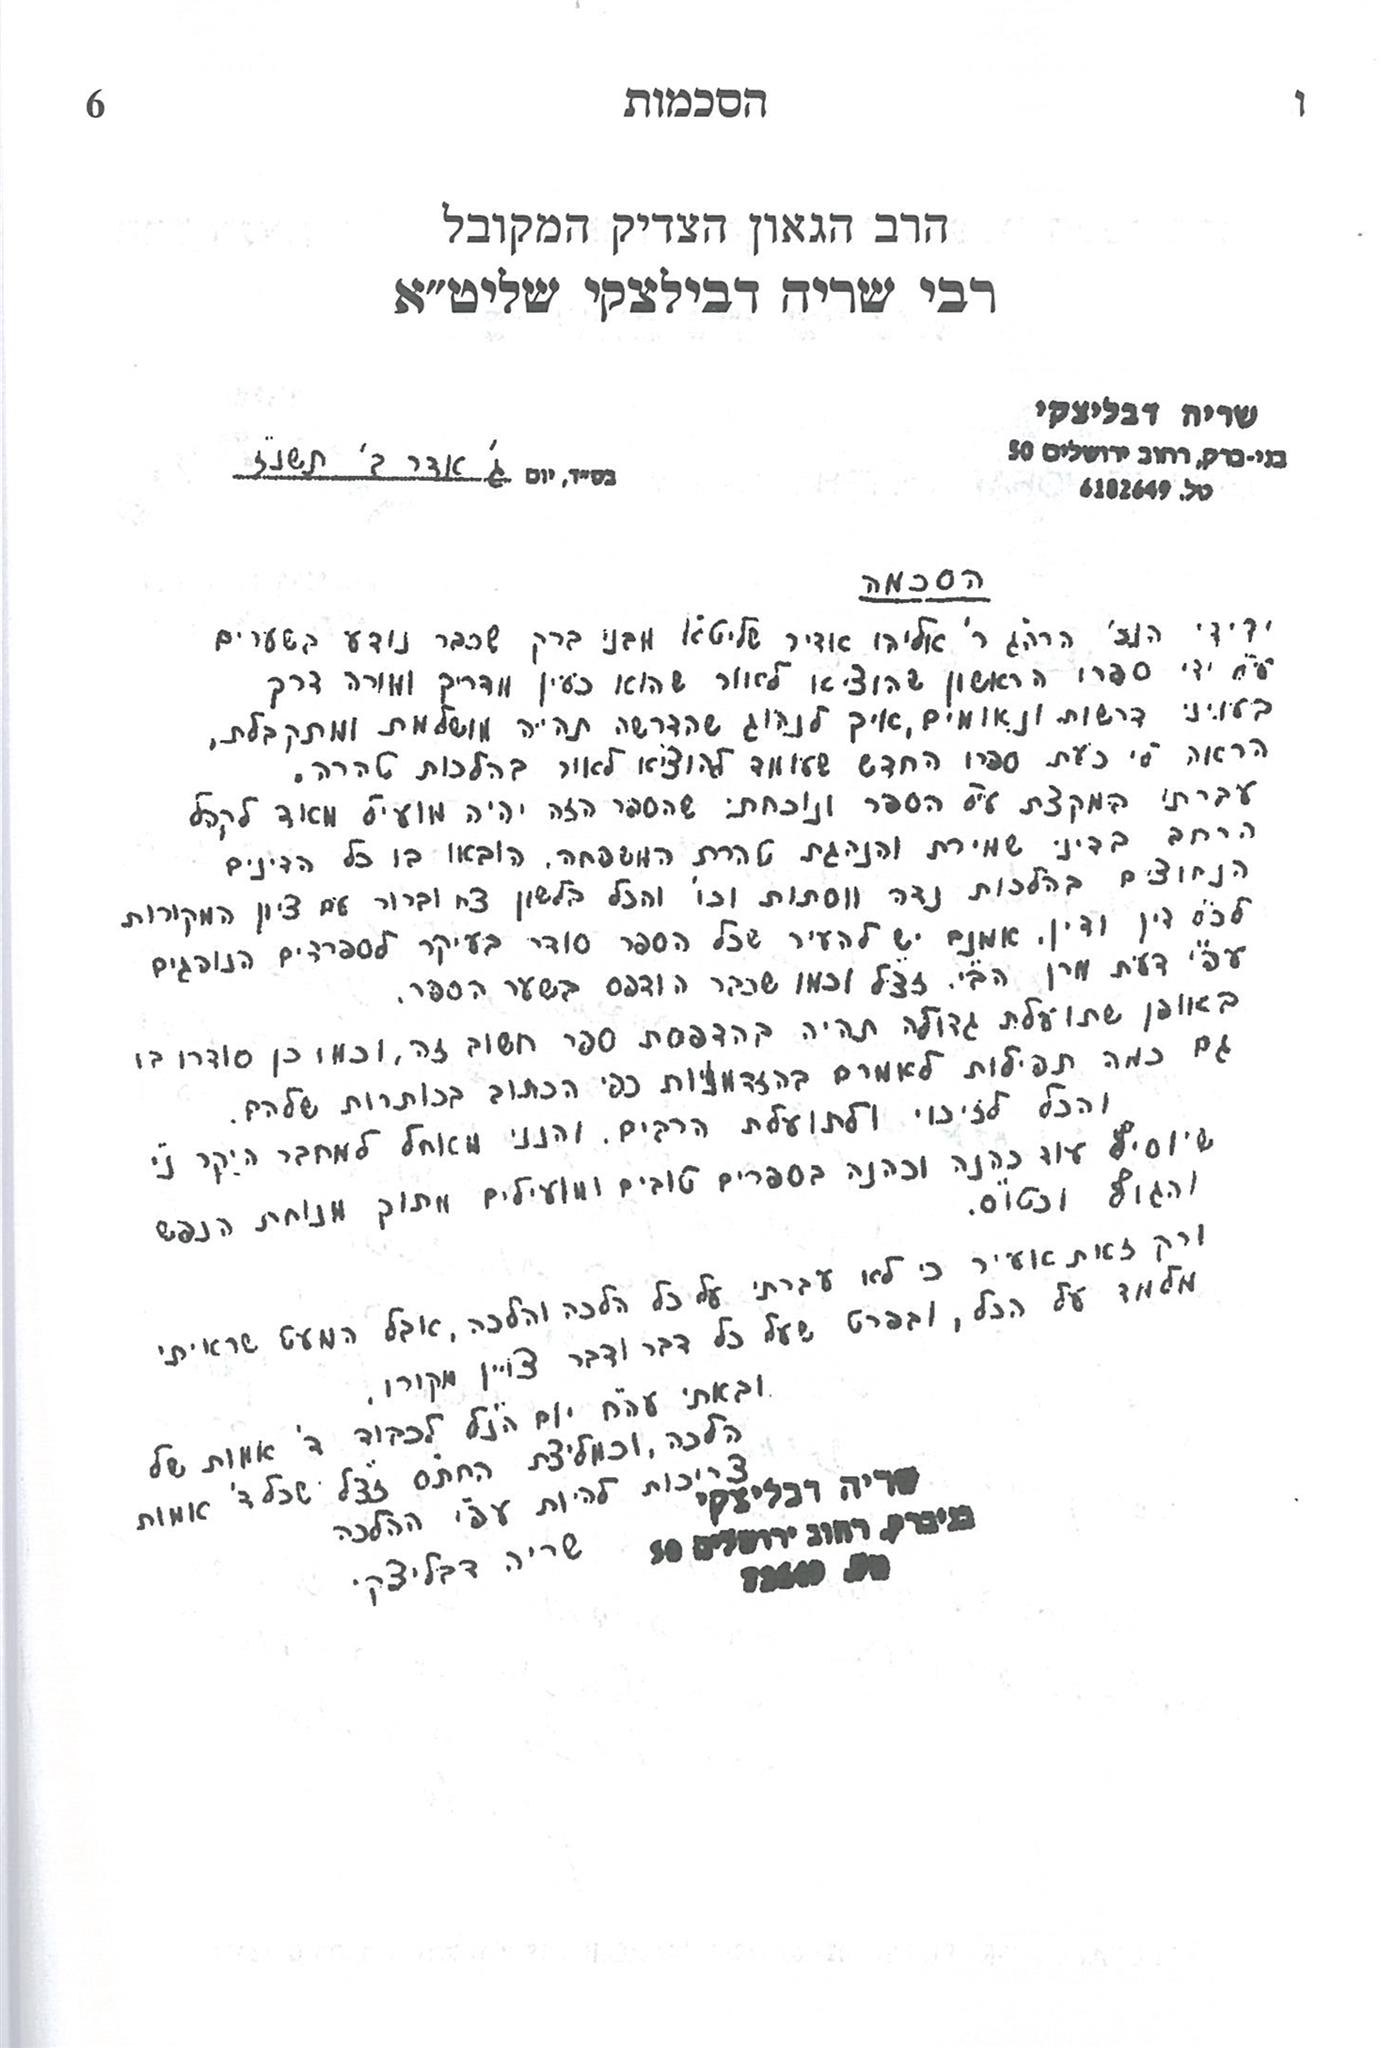 ו הסכמות 6
הרב הגאון הצדיק המקובל
רבי שריה דבילצקי שליט״א
שריה דבליצקי
בני-ברק, רחוב ירושלים 50
טל. 6182649
בס״ד, יום ג' אדר ב' תשנ״ז
הסכמה
ידידי הנז' הרה״ג ר' אליהו אדיר שליט״א מבני ברק שכבר נודע בשערים
ע״י ידי ספרו הראשון שהוציאו לאור שהוא כעין מדריך ומורה דרך
בעניני דרשות ונאומים, איך לנהוג שהדרשה תהיה מושלמת ומתקבלת,
הראה לי כעת ספרו החדש שעומד להוציא לאור בהלכות טהרה.
עברתי במקצת על הספר ונוכחתי שהספר הזה יהיה מועיל מאוד לקהל
הרחב בדיני שמירת והנהגת טהרת המשפחה. הובאו בו כל הדינים
הנחוצים בהלכות נדה ווסתות וכו' והכל בלשון צח וברור עם ציון המקורות
לכל דין ודין. אמנם יש להעיר שכל הספר סודר בעיקר לספרדים הנוהגים
עפ״י דעת מרן הב״י. זצ״ל וכמו שכבר הודפס בשער הספר.
באופן שתועלת גדולה תהיה בהדפסת ספר חשוב זה, וכמו כן סודרו בו
גם כמה תפילות לאמרם בהזדמנויות כפי הכתוב בכותרות שלהם.
והכל לזיכוי ולתועלת הרבים. והנני מאחל למחבר היקר נ״י
שיוסיף עוד כהנה וכהנה בספרים טובים ומועילים מתוך מנוחת הנפש
והגוף וכט״ס.
ורק זאת אעיר כי לא עברתי על כל הלכה והלכה, אבל המעט שראיתי
מלמד על הכל, ובפרט שעל כל דבר ודבר צויין מקורו.
ובאתי עה״ח יום הנ״ל לכבוד ד' אמות של
הלכה, וכמליצת החת״ס זצ״ל שכל ד' אמות
צריכות להיות עפ״י ההלכה
שריה דבליצקי
שריה דבליצקי
בני ברק, רחוב ירושלים 50